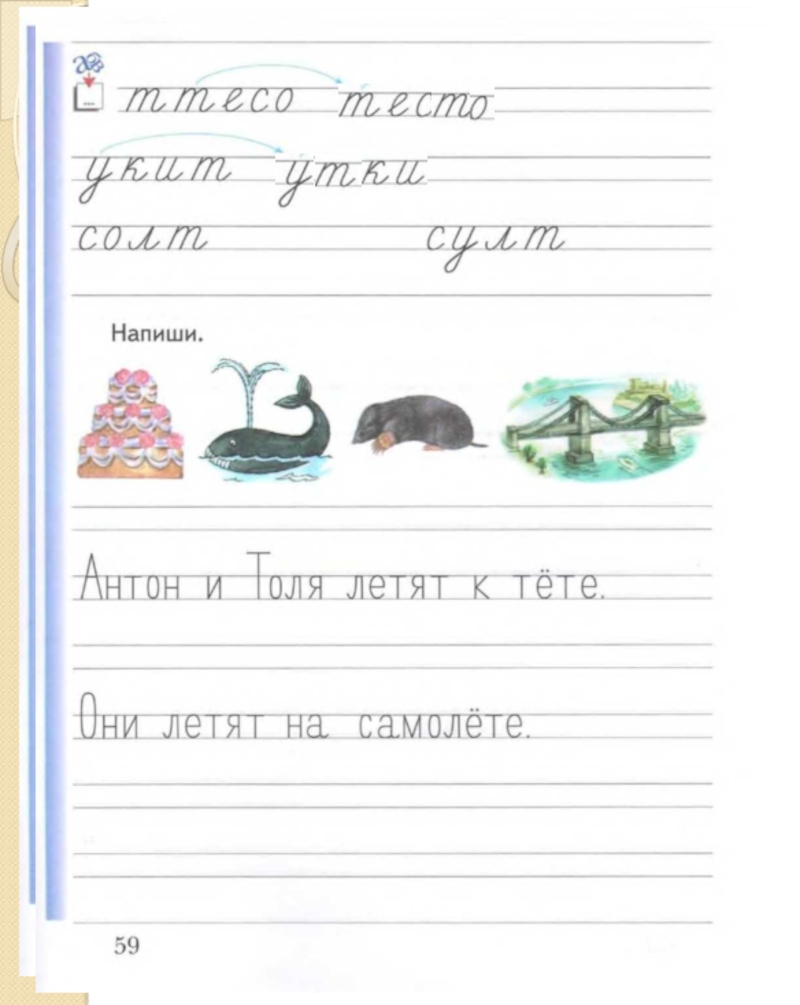 ...
ттесо тесто
укит утки
солт султ
Напиши.
Антон и Толя летят к тёте.
Они летят на самолёте.
59